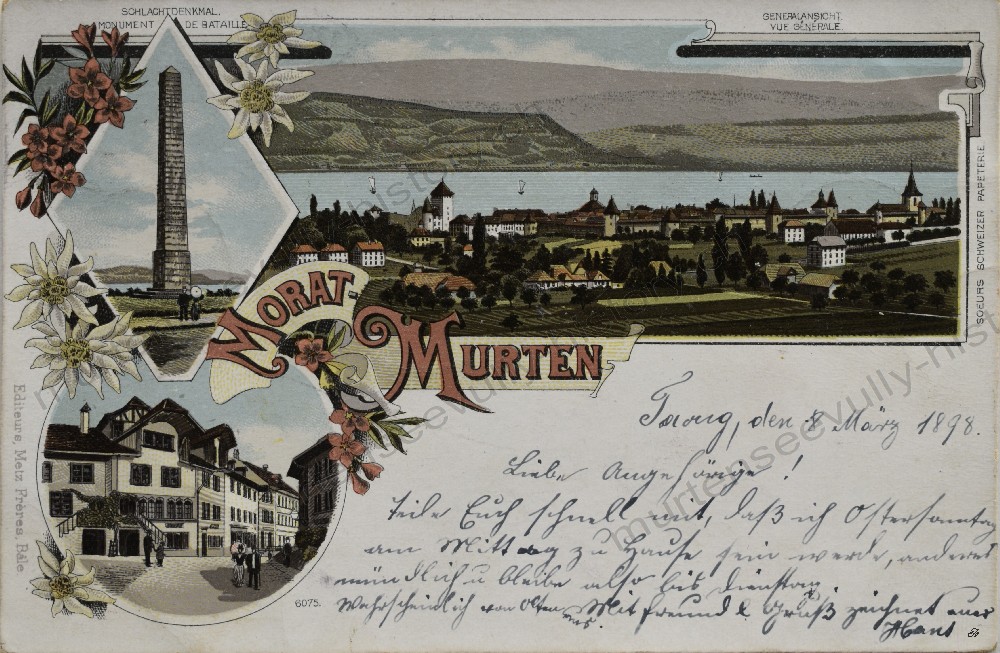 SCHLACHTDENKMAL.
MONUMENT DE BATAILLE
GENERALANSICHT.
VUE GÉNÉRALE.
SOEURS SCHWEIZER PAPETERIE
MORAT-
MURTEN
Editeurs, Metz Frères, Bâle
6075.
den 8 März 1898.
Liebe Angehörige!
Teile Euch schnell mit, daß ich Ostersonntag
am Mittag zu Hause sein werde, anderes
mündlich u bleibe also bis Dienstag.
Wahrscheinlich von Olten aus. Mit Freund & Gruß zeichnet euer
Hans